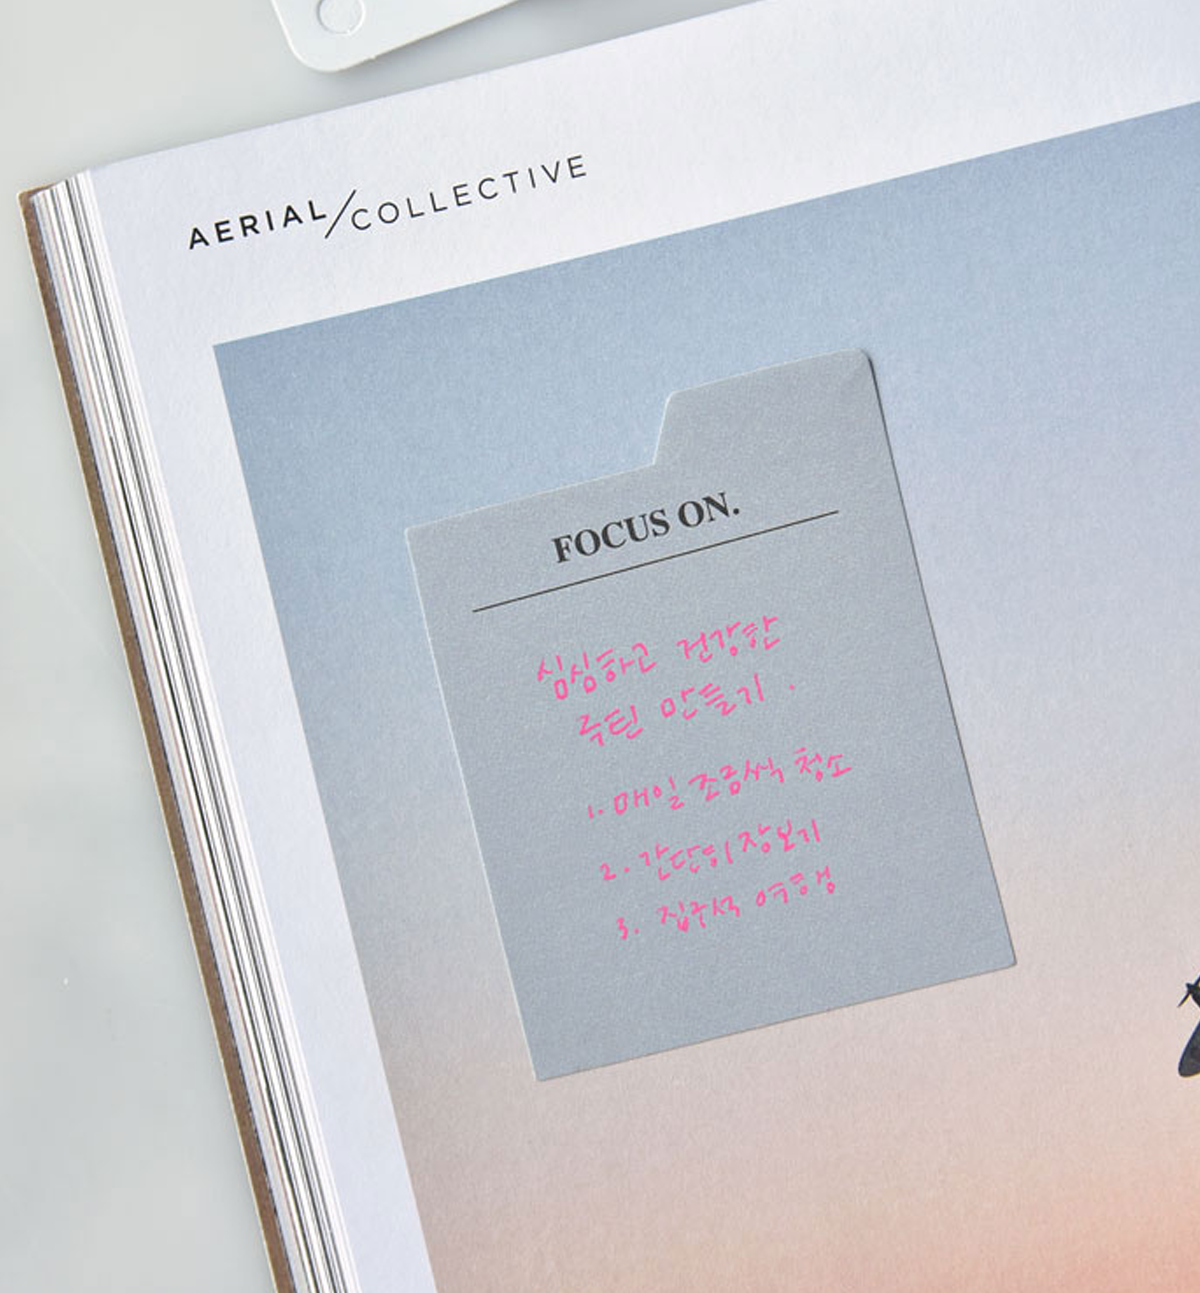 AERIAL/COLLECTIVE
FOCUS ON.
심심하고 건강한
루틴 만들기.
1. 매일 조금씩 청소
2. 간단히 장보기
3. 집구석 여행